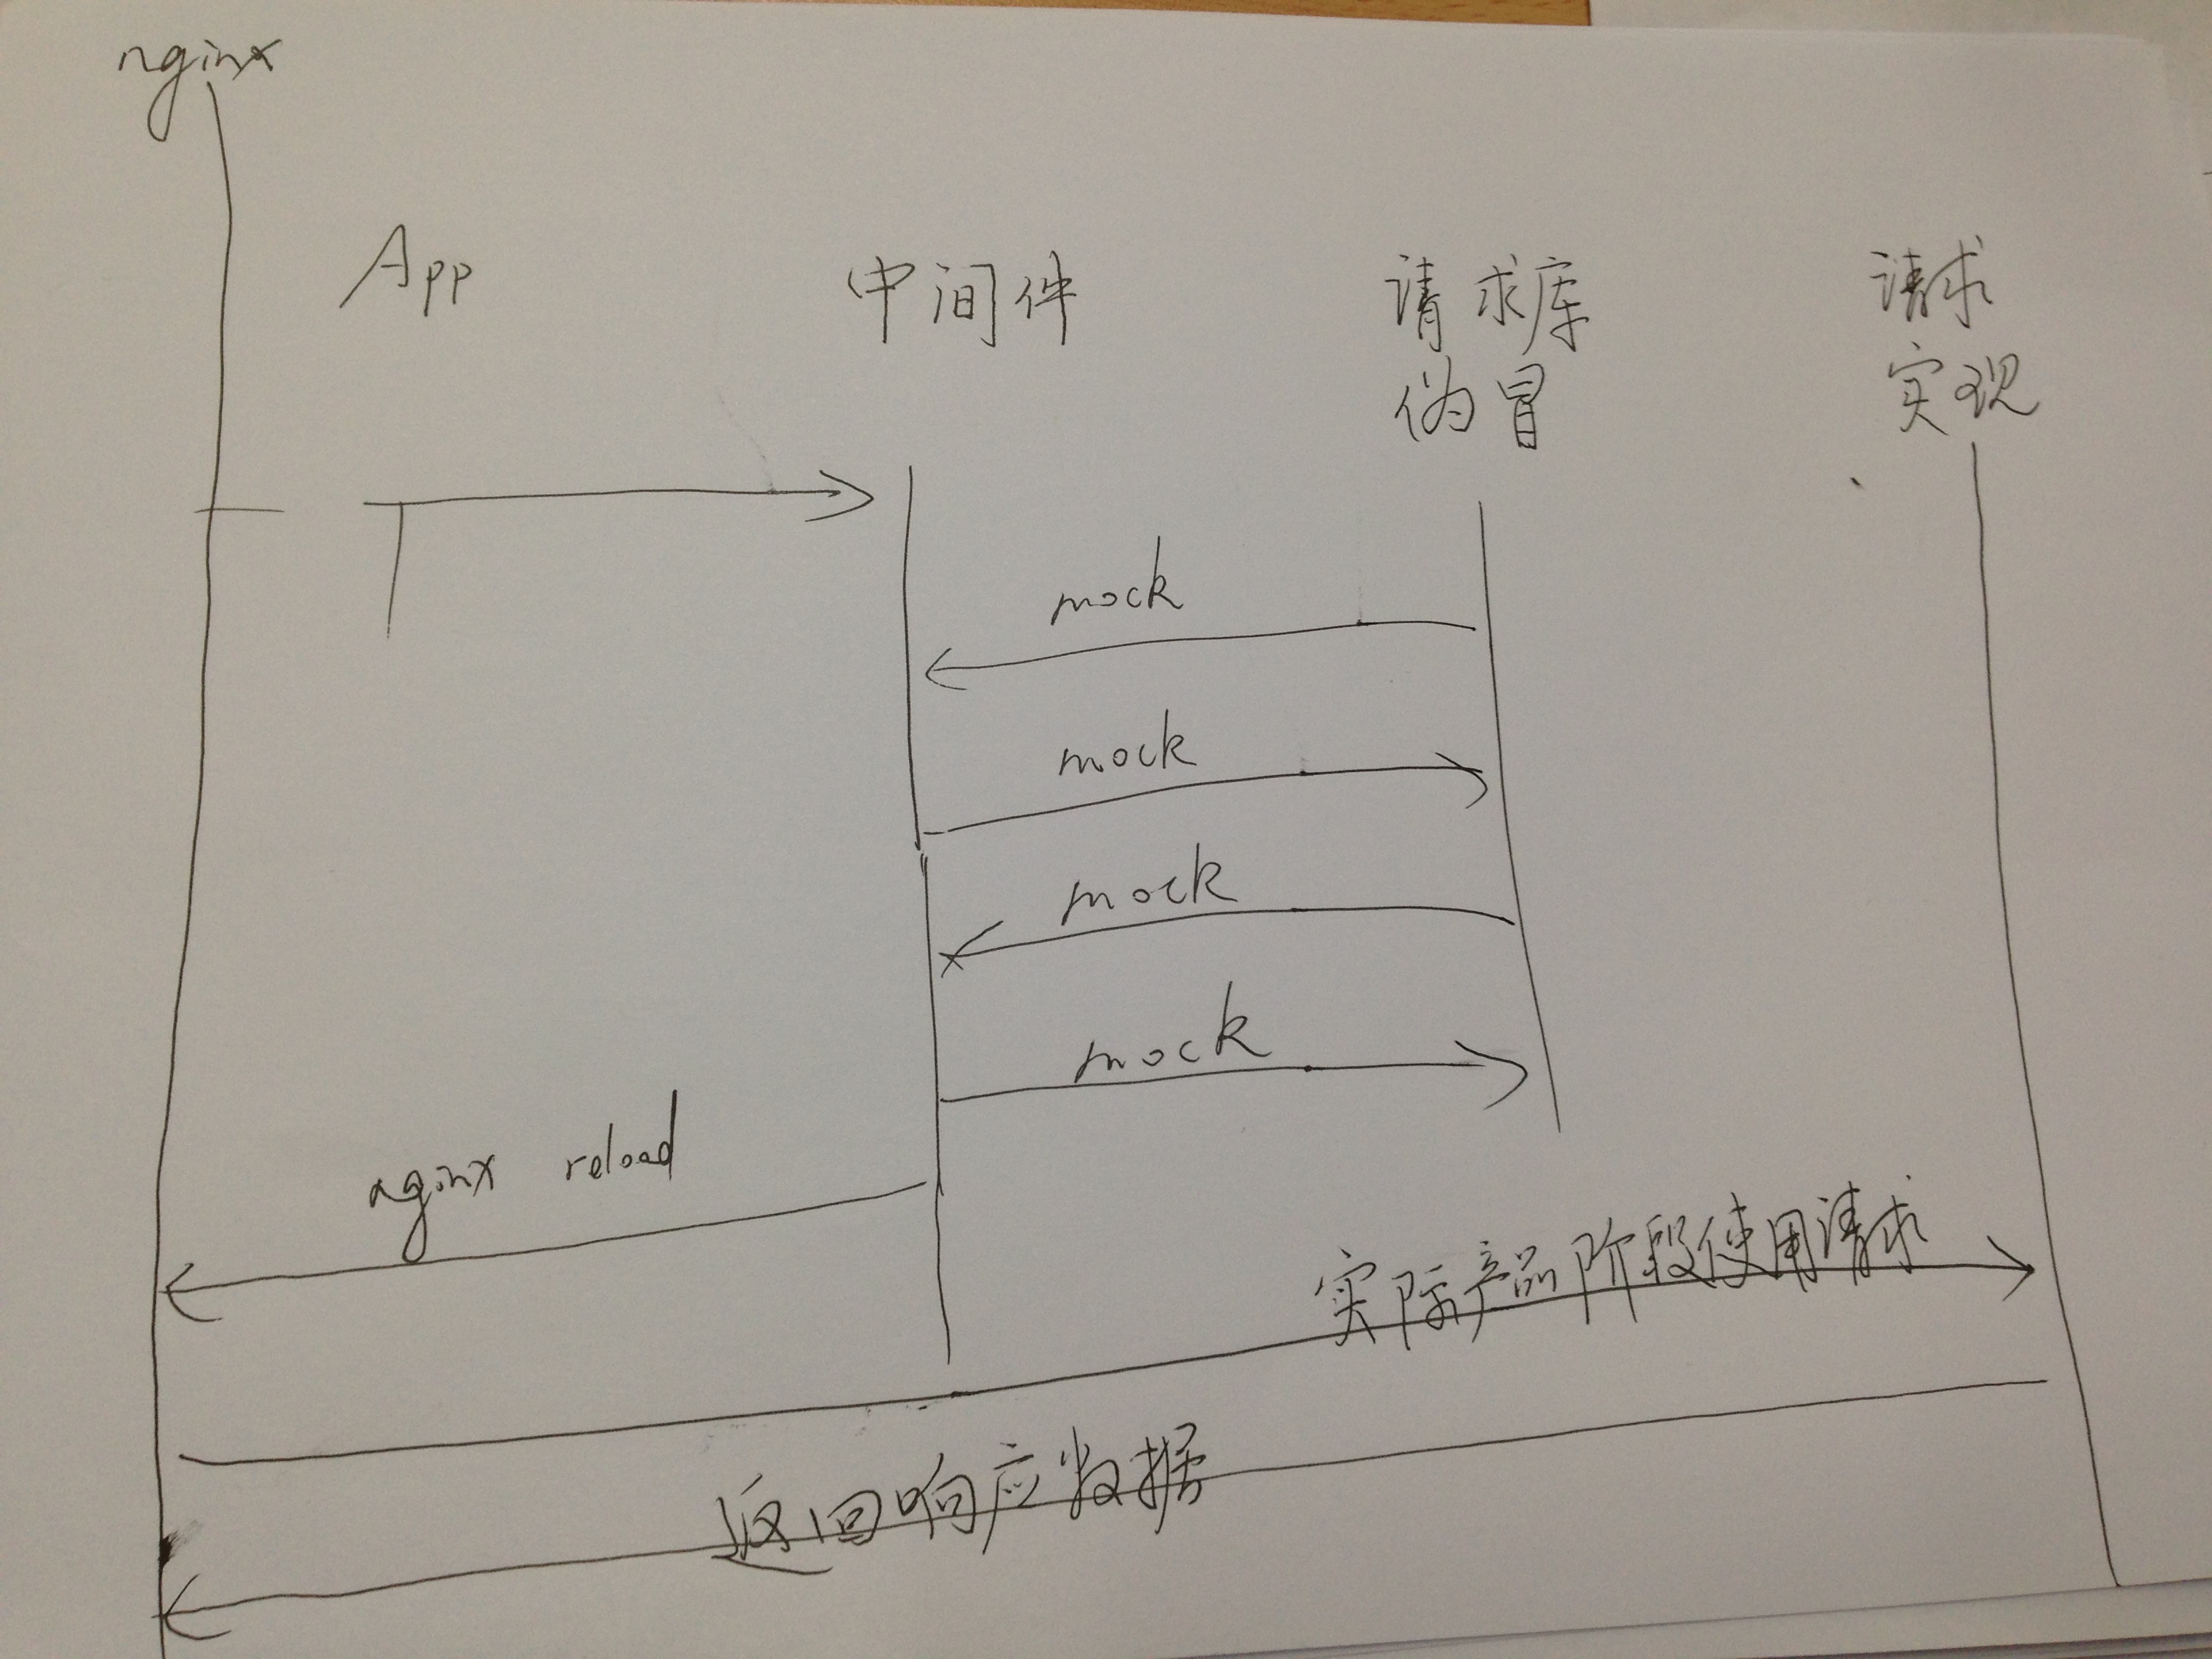 nginx
App
中间件
请求库
伪冒
请求
实现
mock
mock
mock
mock
nginx reload
实际产品阶段使用请求
返回响应数据